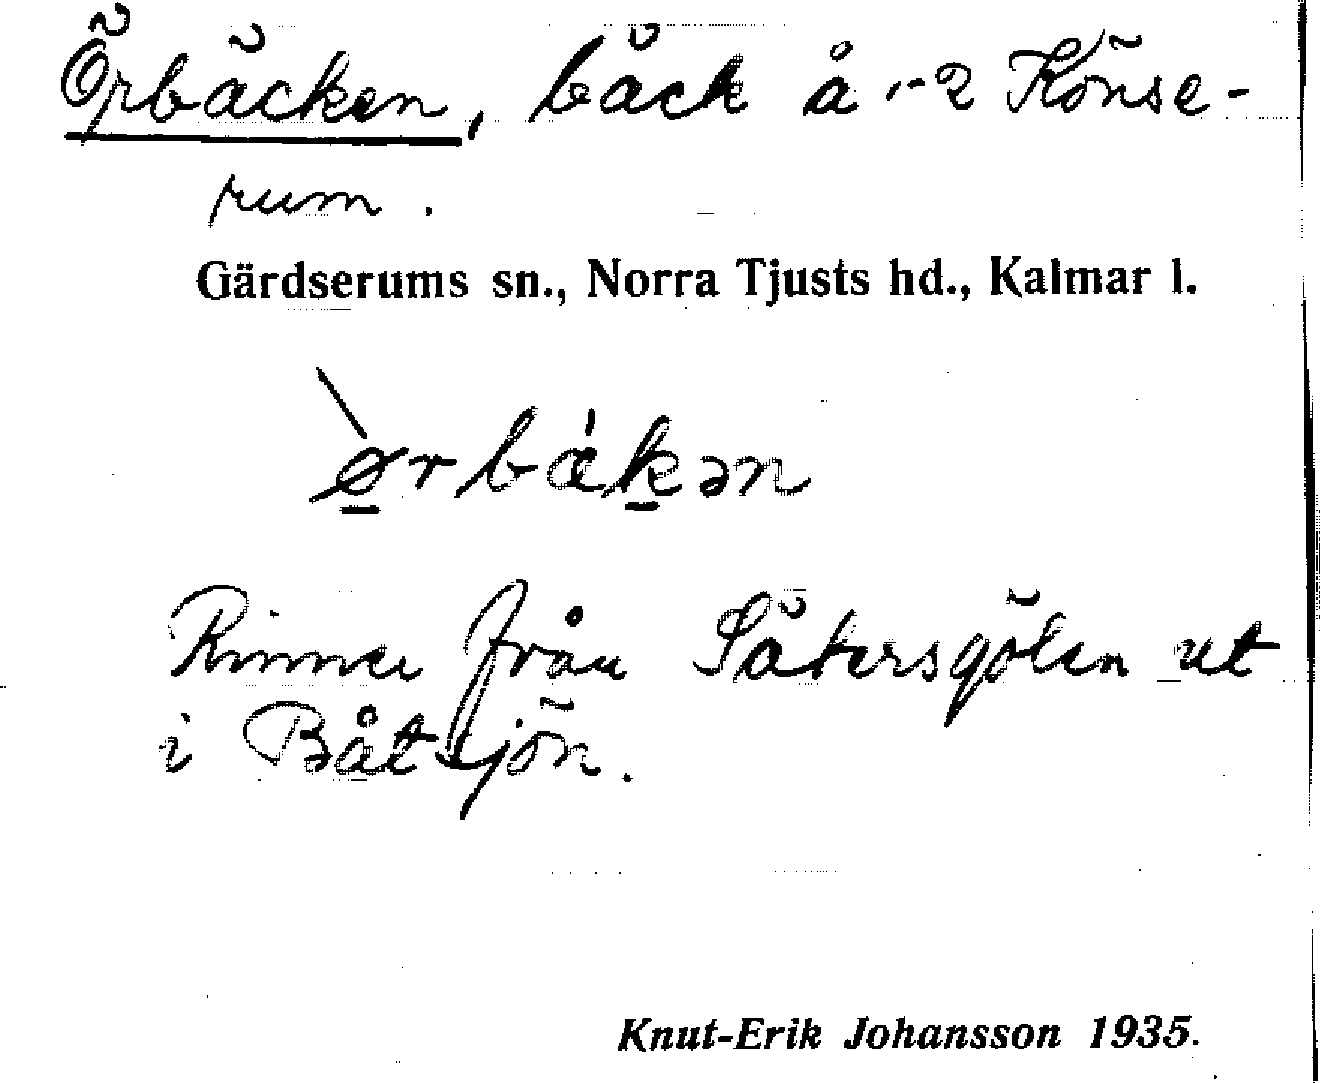 Örbäcken, bäck å 1-2 Könse-
rum.
Gärdserums sn., Norra Tjusts hd., Kalmar l.
ø̠rbæ̀k̠ən
Rinner från Sätersgölen ut
i Båtsjön.
Knut-Erik Johansson 1935.